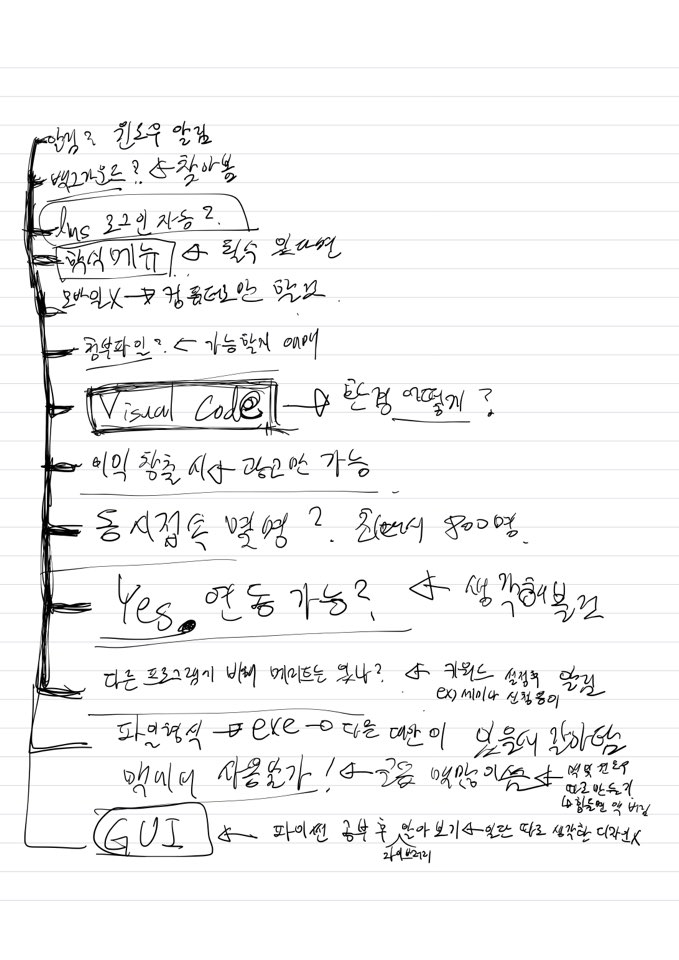 알림? 윈도우 알림
백그라운드? ← 찾아봄
lms 로그인 자동?
학식메뉴 ← 필수 일다면
모바일X → 컴퓨터로만 할건
첨부파일? ← 가능할지 애매
Visual Code → 환경 어떻게?
이익 창출 시 ← 광고만 가능
동시접속 몇명? 최대 800명.
Yes. 연동가능? ← 생각해볼건
다른 프로그램에 비해 메리트는 있나? ← 키워드 설정후 알림
ex) 세미나 신청 등
파일형식 → exe → 다른 대안이 있을지
맥에서 사용불가! ← 요즘 맥많이씀 ← 맥 및 윈도우
따로 만들기
↳ 힘들면 맥 버림
GUI ← 파이썬 공부 후 알아보기 ← 일단 따로 생각한 디자인X
라이브러리